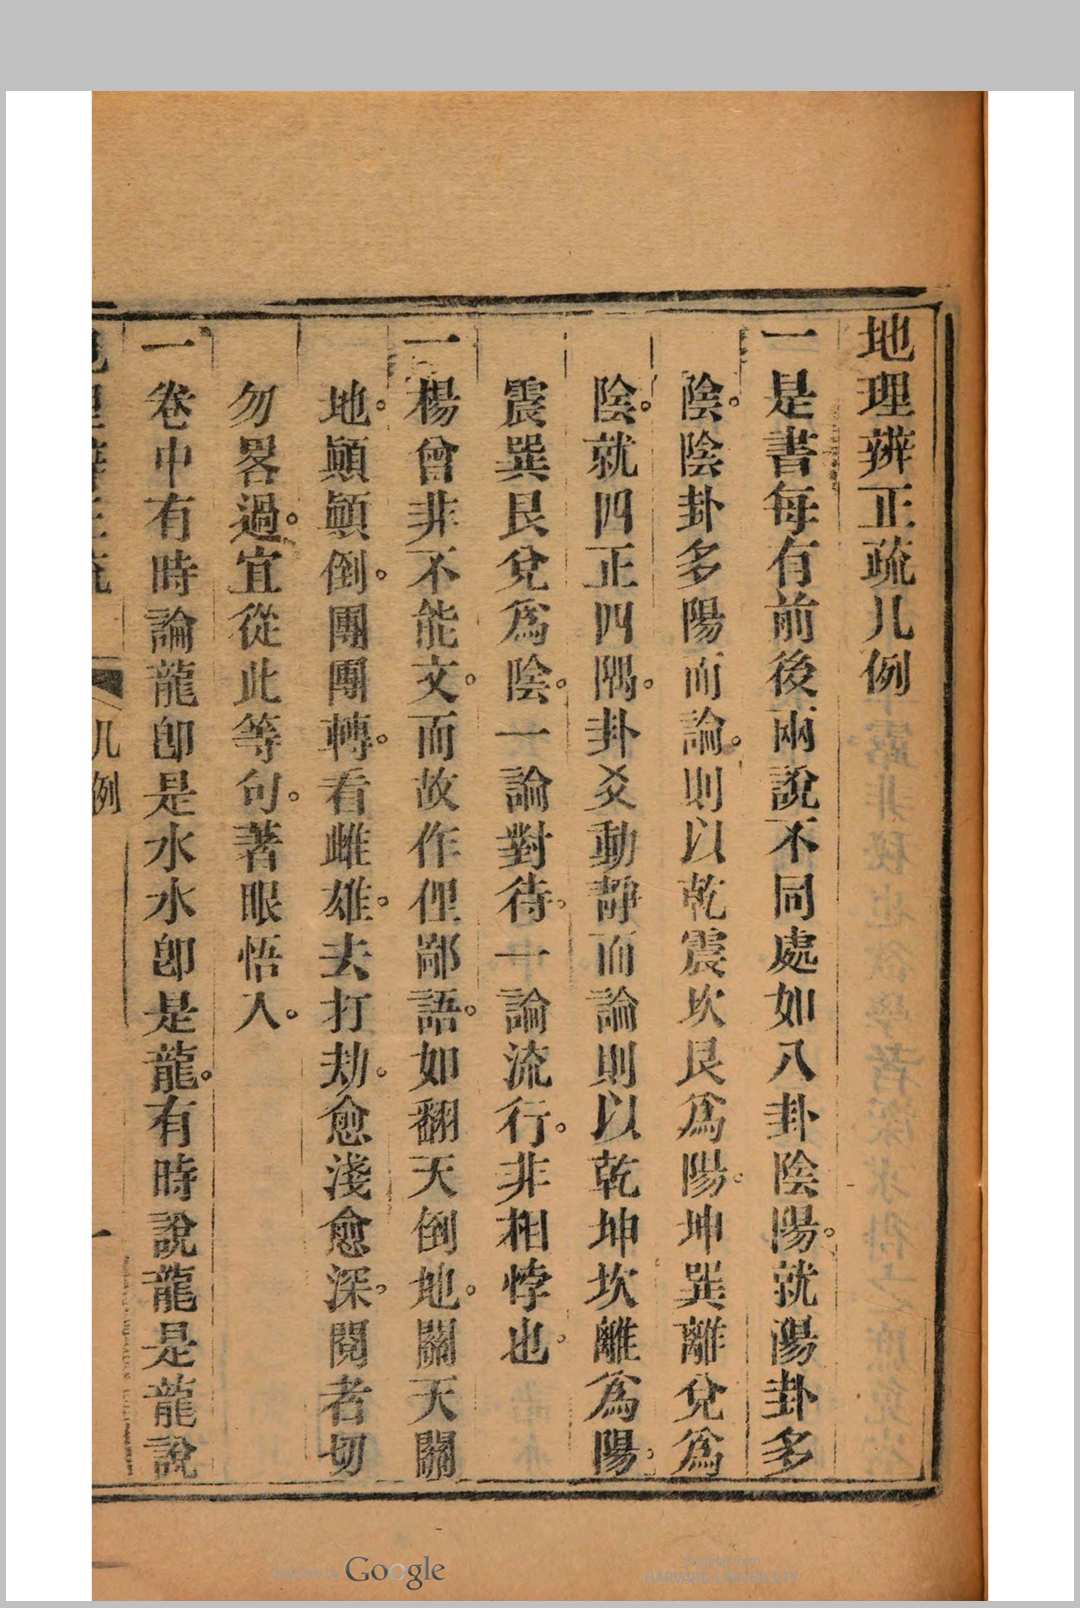 地理辨正疏凡例
一是書每有前後兩說不同處如八卦陰陽。就陽卦多
陰。陰卦多陽而論。則以乾震坎艮爲陽。坤巽離兌爲
陰。就四正四隅。卦爻動靜而論則以乾坤坎離爲陽。
震巽艮兌爲陰。一論對待。一論流行。非相悖也。
一楊曾非不能文。而故作俚鄙語。如翻天倒地。關天關
地。顚顚倒。團團轉。看雌雄。去打劫。愈淺愈深。閱者切
勿畧過。宜從此等句。著眼悟入。
一卷中有時論龍卽是水水卽是龍。有時說龍是龍說
凡例
一
Google